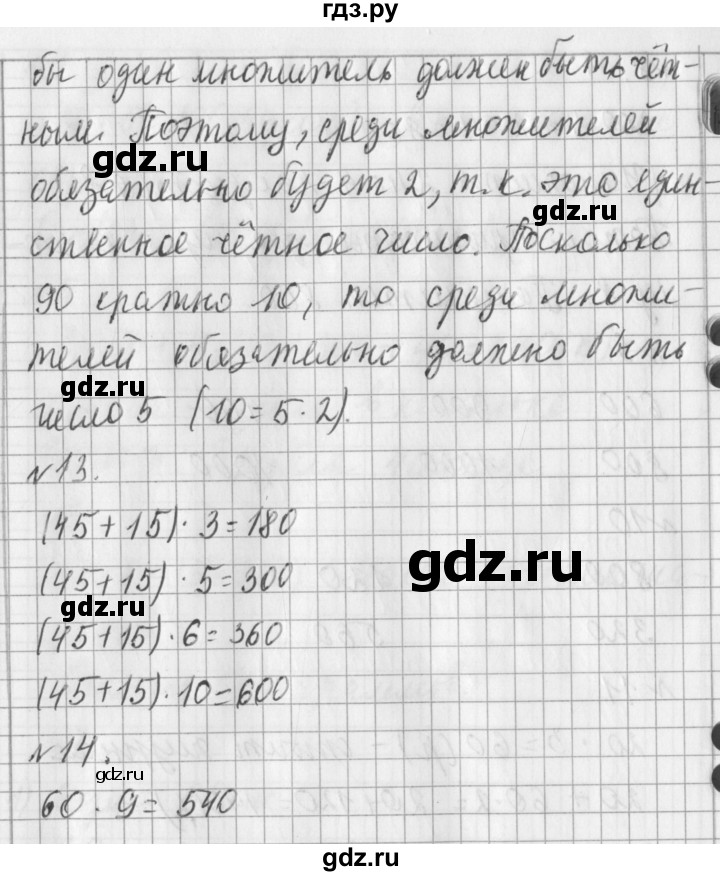 гдз.ру
бы один множитель должен быть чёт-
ным. Поэтому, среди множителей
gdz.ru
обязательно будет 2, т.к. это един-
gdz.ru
ственное чётное число. Поскольку
90 кратно 10, то среди множи-
телей обязательно должно быть
gdz.ru
число 5 (10=5·2).
№13.
(45+15)·3=180
gdz.ru
(45+15)·5=300
gdz.ru
(45+15)·6=360
(45+15)·10=600
№14.
gdz.ru
60·9=540
gdz.ru